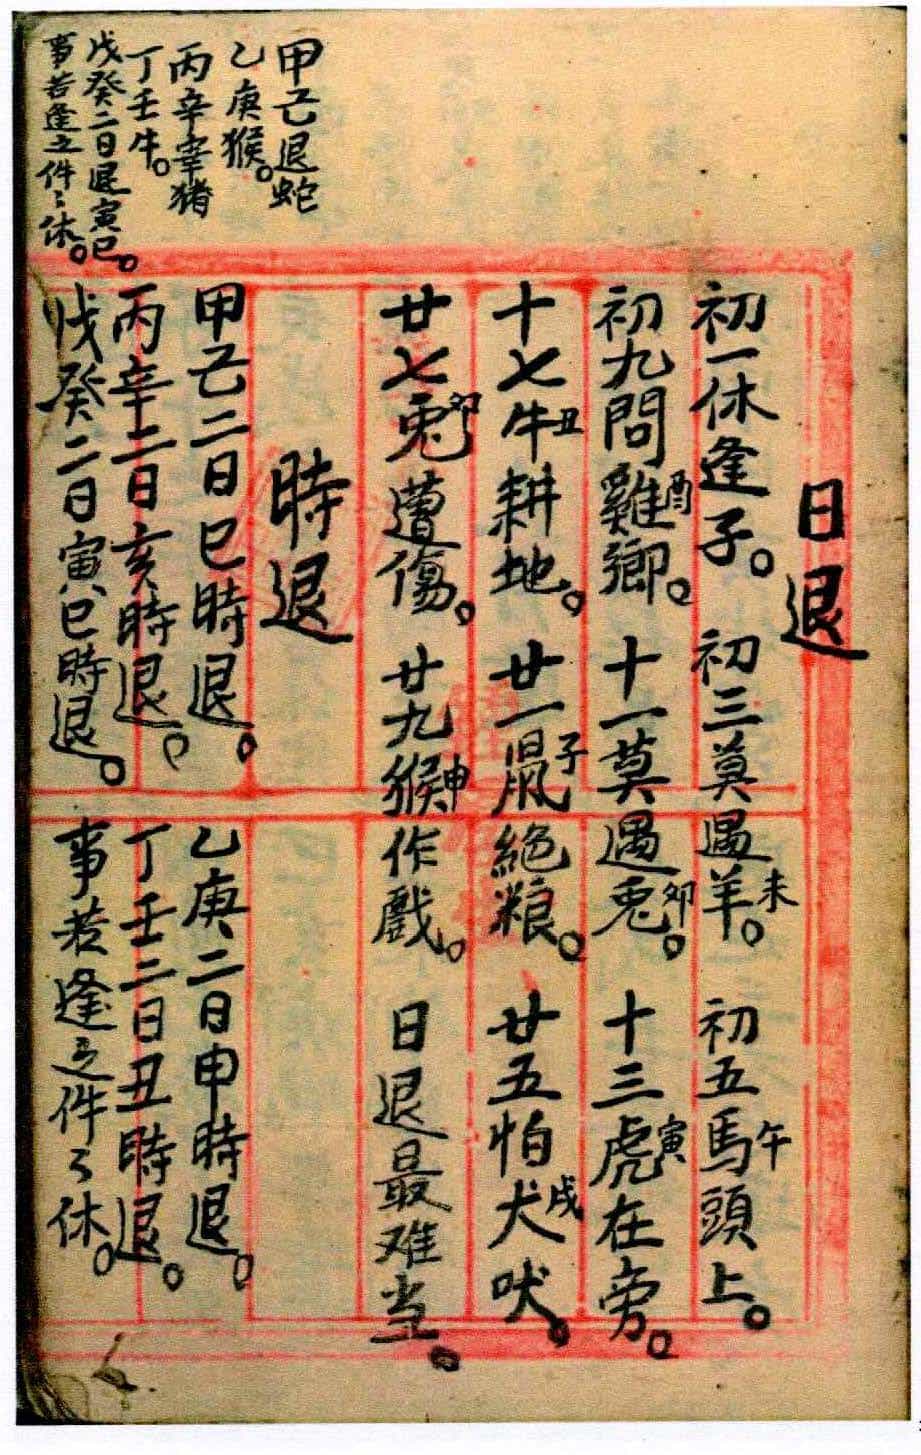 甲己退蛇
乙庚猴。
丙辛宰猪
丁壬牛。
戊癸二日退寅巳。
事若逢之件〻休。
日退
初一休逢子。初三莫遇羊未。初五馬午頭上。
初九問雞酉鄉。十一莫遇兎卯。十三虎寅在旁。
十七牛丑耕地。廿一鼠子絕粮。廿五怕犬戌吠。
廿七兎卯遭傷。廿九猴申作戲。日退最难当。
時退
甲己二日巳時退。乙庚二日申時退。
丙辛二日亥時退。丁壬二日丑時退。
戊癸二日寅巳時退。事若逢之件〻休。